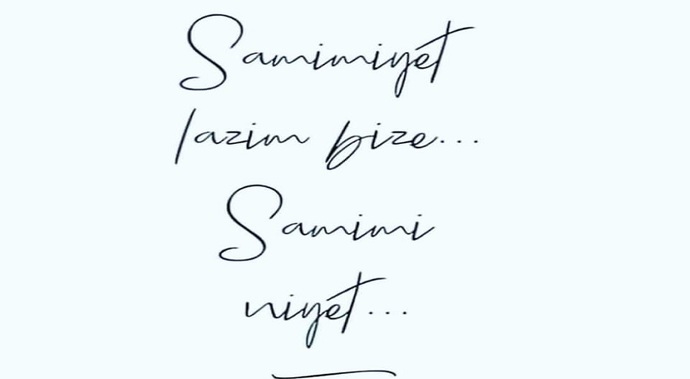 Samimiyet
lazim bize...
Samimi
niyet...